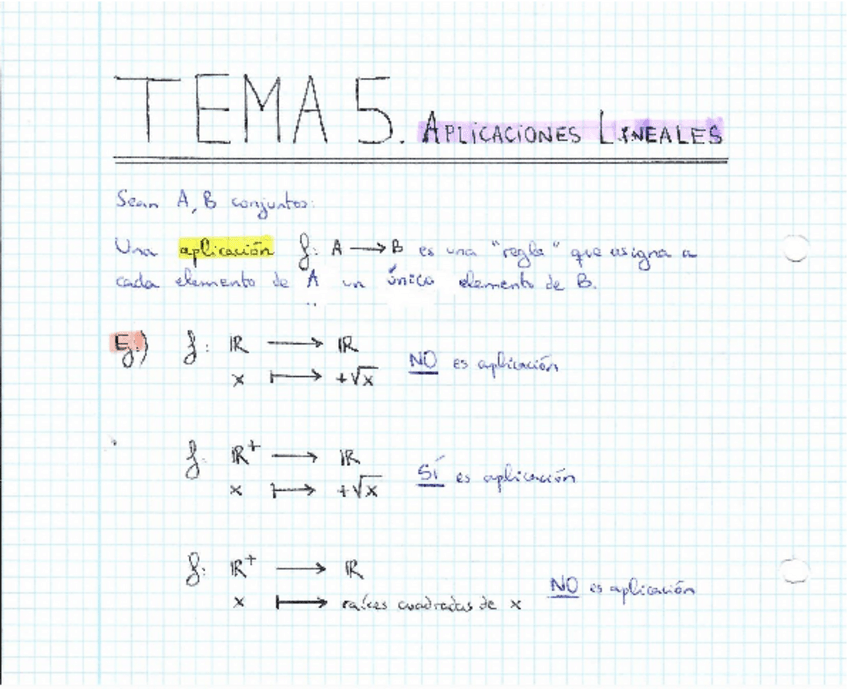 TEMA 5. APLICACIONES LINEALES
Sean A, B conjuntos:
Una aplicación f: A → B es una "regla" que asigna a
cada elemento de A un único elemento de B.
Ej.) f: ℝ → ℝ
x ↦ +√x NO es aplicación
f: ℝ⁺ → ℝ
x ↦ +√x SÍ es aplicación
f: ℝ⁺ → ℝ
x ↦ raíces cuadradas de x NO es aplicación